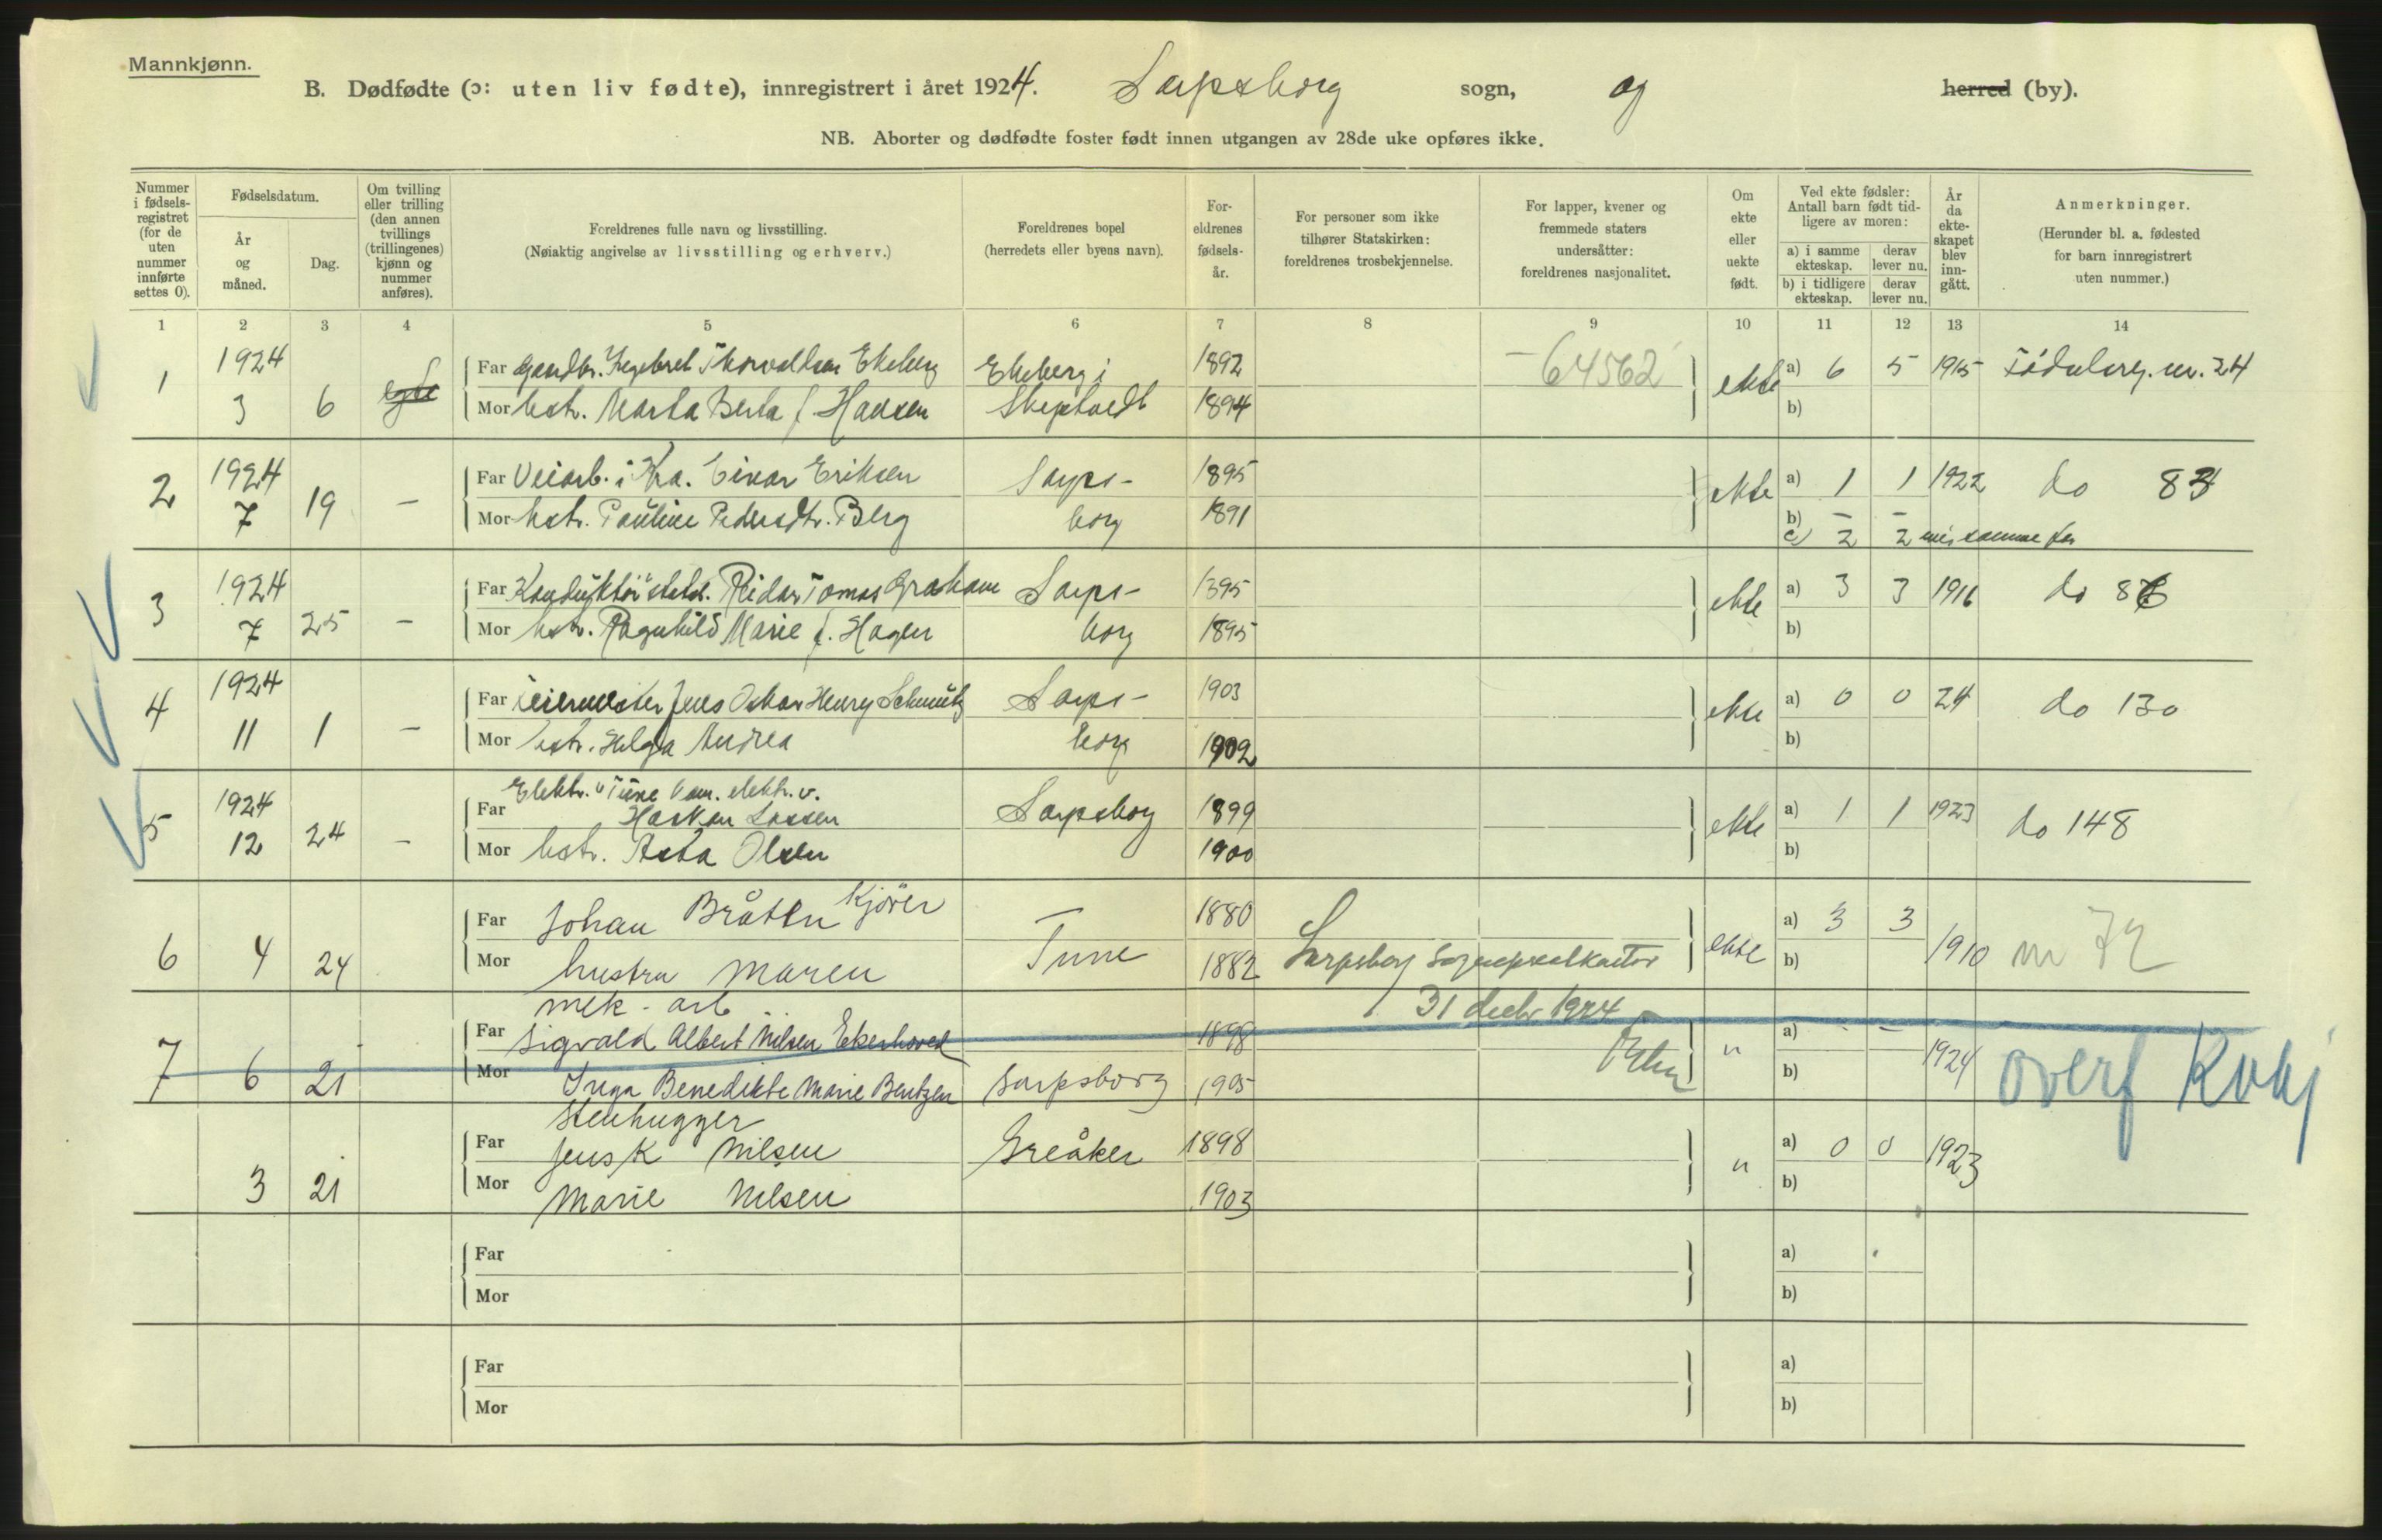 Mannkjønn.
B. Dødfødte (ɔ: uten liv fødte), innregistrert i året 1924. Sarpsborg sogn, og herred (by).
NB. Aborter og dødfødte foster født innen utgangen av 28de uke opføres ikke.
Nummer i fødselsregistret (for de uten nummer innførte settes 0).
Fødselsdatum.
År og måned.
Dag.
Om tvilling eller trilling (den annen tvillings (trillingenes) kjønn og nummer anføres).
Foreldrenes fulle navn og livsstilling.
(Nøiaktig angivelse av livsstilling og erhverv.)
Foreldrenes bopel
(herredets eller byens navn).
Foreldrenes fødselsår.
For personer som ikke tilhører Statskirken: foreldrenes trosbekjennelse.
For lapper, kvener og fremmede staters undersåtter: foreldrenes nasjonalitet.
Om ekte eller uekte født.
Ved ekte fødsler: Antall barn født tidligere av moren:
a) i samme ekteskap. derav lever nu.
b) i tidligere ekteskap. derav lever nu.
År da ekteskapet blev inngått.
Anmerkninger.
(Herunder bl. a. fødested for barn innregistrert uten nummer.)
1 2 3 4 5 6 7 8 9 10 11 12 13 14
1 1924 3 6 Far Gaardbr. Ingebret Thorvaldsen Ekeberg Ekeberg i 1892 64562 ekte a) 6 5 1915 Fødselreg. nr. 24
Mor hstr. Marta Berta f. Hansen Skeptvedt 1894 b)
2 1924 7 19 – Far Veiarb. i Kra. Einar Eriksen Sarps- 1895 ekte a) 1 1 1922 do 83
Mor hstr. Pauline Pedersdtr. Berg borg 1891 b) – –
c) 2 2 med samme far
3 1924 7 25 – Far Konduktør statsb. Reidar Tomas Graham Sarps- 1895 ekte a) 3 3 1916 do 86
Mor hstr. Ragnhild Marie f. Hagen borg 1895 b)
4 1924 11 1 – Far Feiermester Jens Oskar Henry Schmutz Sarps- 1903 ekte a) 0 0 24 do 130
Mor hstr. Helga Andrea borg 1902 b)
Elektr. v Tune kom. elektr. v.
5 1924 12 24 – Far Haakon Lassen Sarpsborg 1899 ekte a) 1 1 1923 do 148
Mor hstr. Asta Olsen 1900 b)
6 4 24 Far Johan Bråten Kjører Tune 1880 ekte a) 3 3 1910 nr 72
Mor hustru Maren 1882 Sarpsborg Sogneprestkontor b)
31 decbr 1924
mek - arb
7 6 21 Far Sigvald Albert Nilsen Ekerhoved 1898 " a) – – 1924 overf
Mor Inga Benedikte Marie Bentzen Sarpsborg 1905 b)
Stenhugger
3 21 Far Jens K Nilsen Greåker 1898 " a) 0 0 1923
Mor Marie Nilsen 1903 b)
Far a)
Mor b)
Far a)
Mor b)